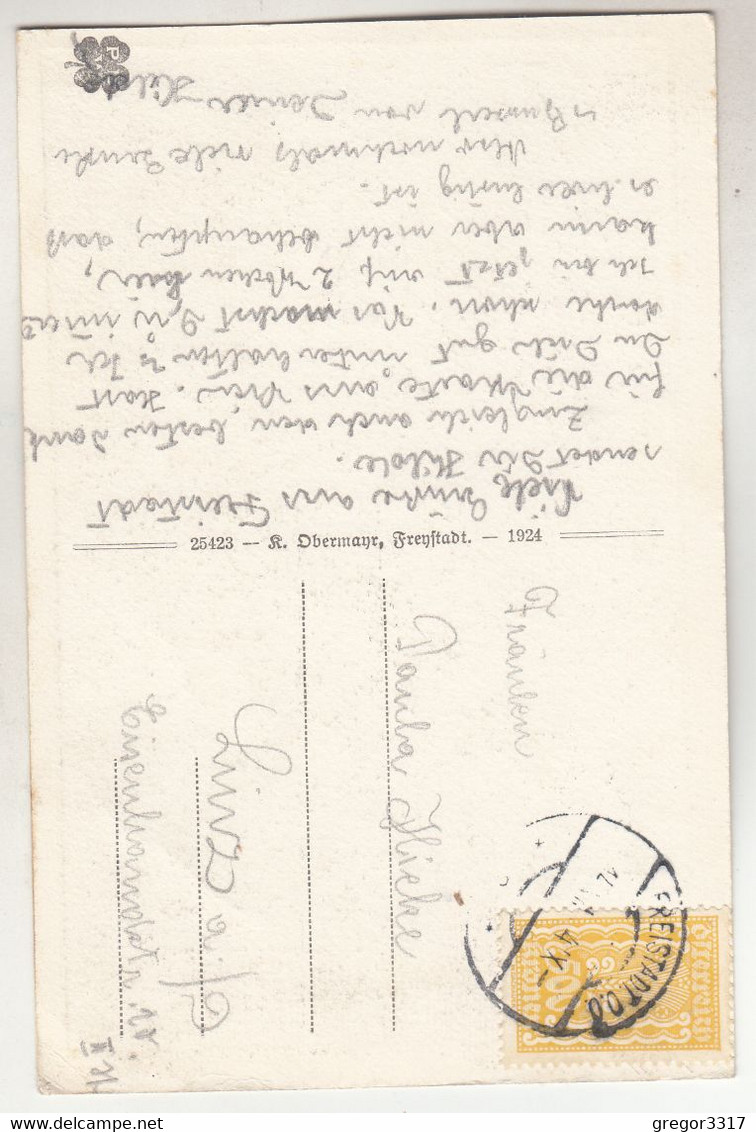 Viele Grüße aus Freistadt
sendet Dir Hilde.
Zugleich auch den besten Dank
für die Karte aus Hast
Du Dich gut unterhalten? Ich
danke schon. Was machst Du immer?
Ich bin jetzt auf 2 Wochen hier,
kann aber nicht behaupten, daß
es hier lustig ist.
Also nochmals viele Grüße
u. Busserl von Deiner Hilde
25423 — K. Obermayr, Freystadt. — 1924
Fräulein
Paula Hicke
Linz a./D
Eisenhandstr.
II
FREISTADT O.Ö.
Österreich